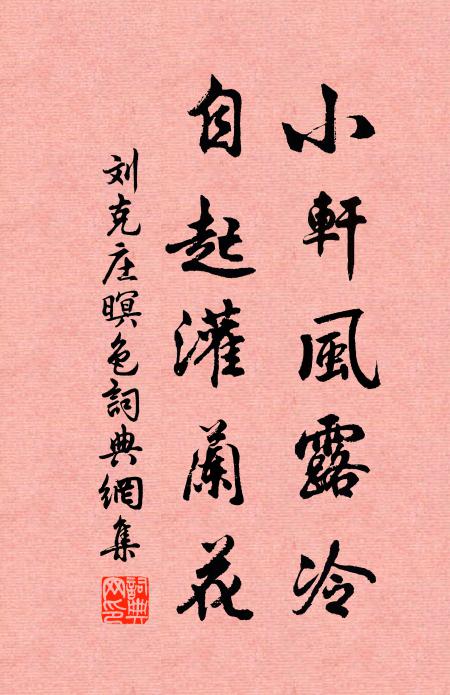 小軒風露冷
自起灌蘭花
刘克庄暝色詞典網集
詞典网印